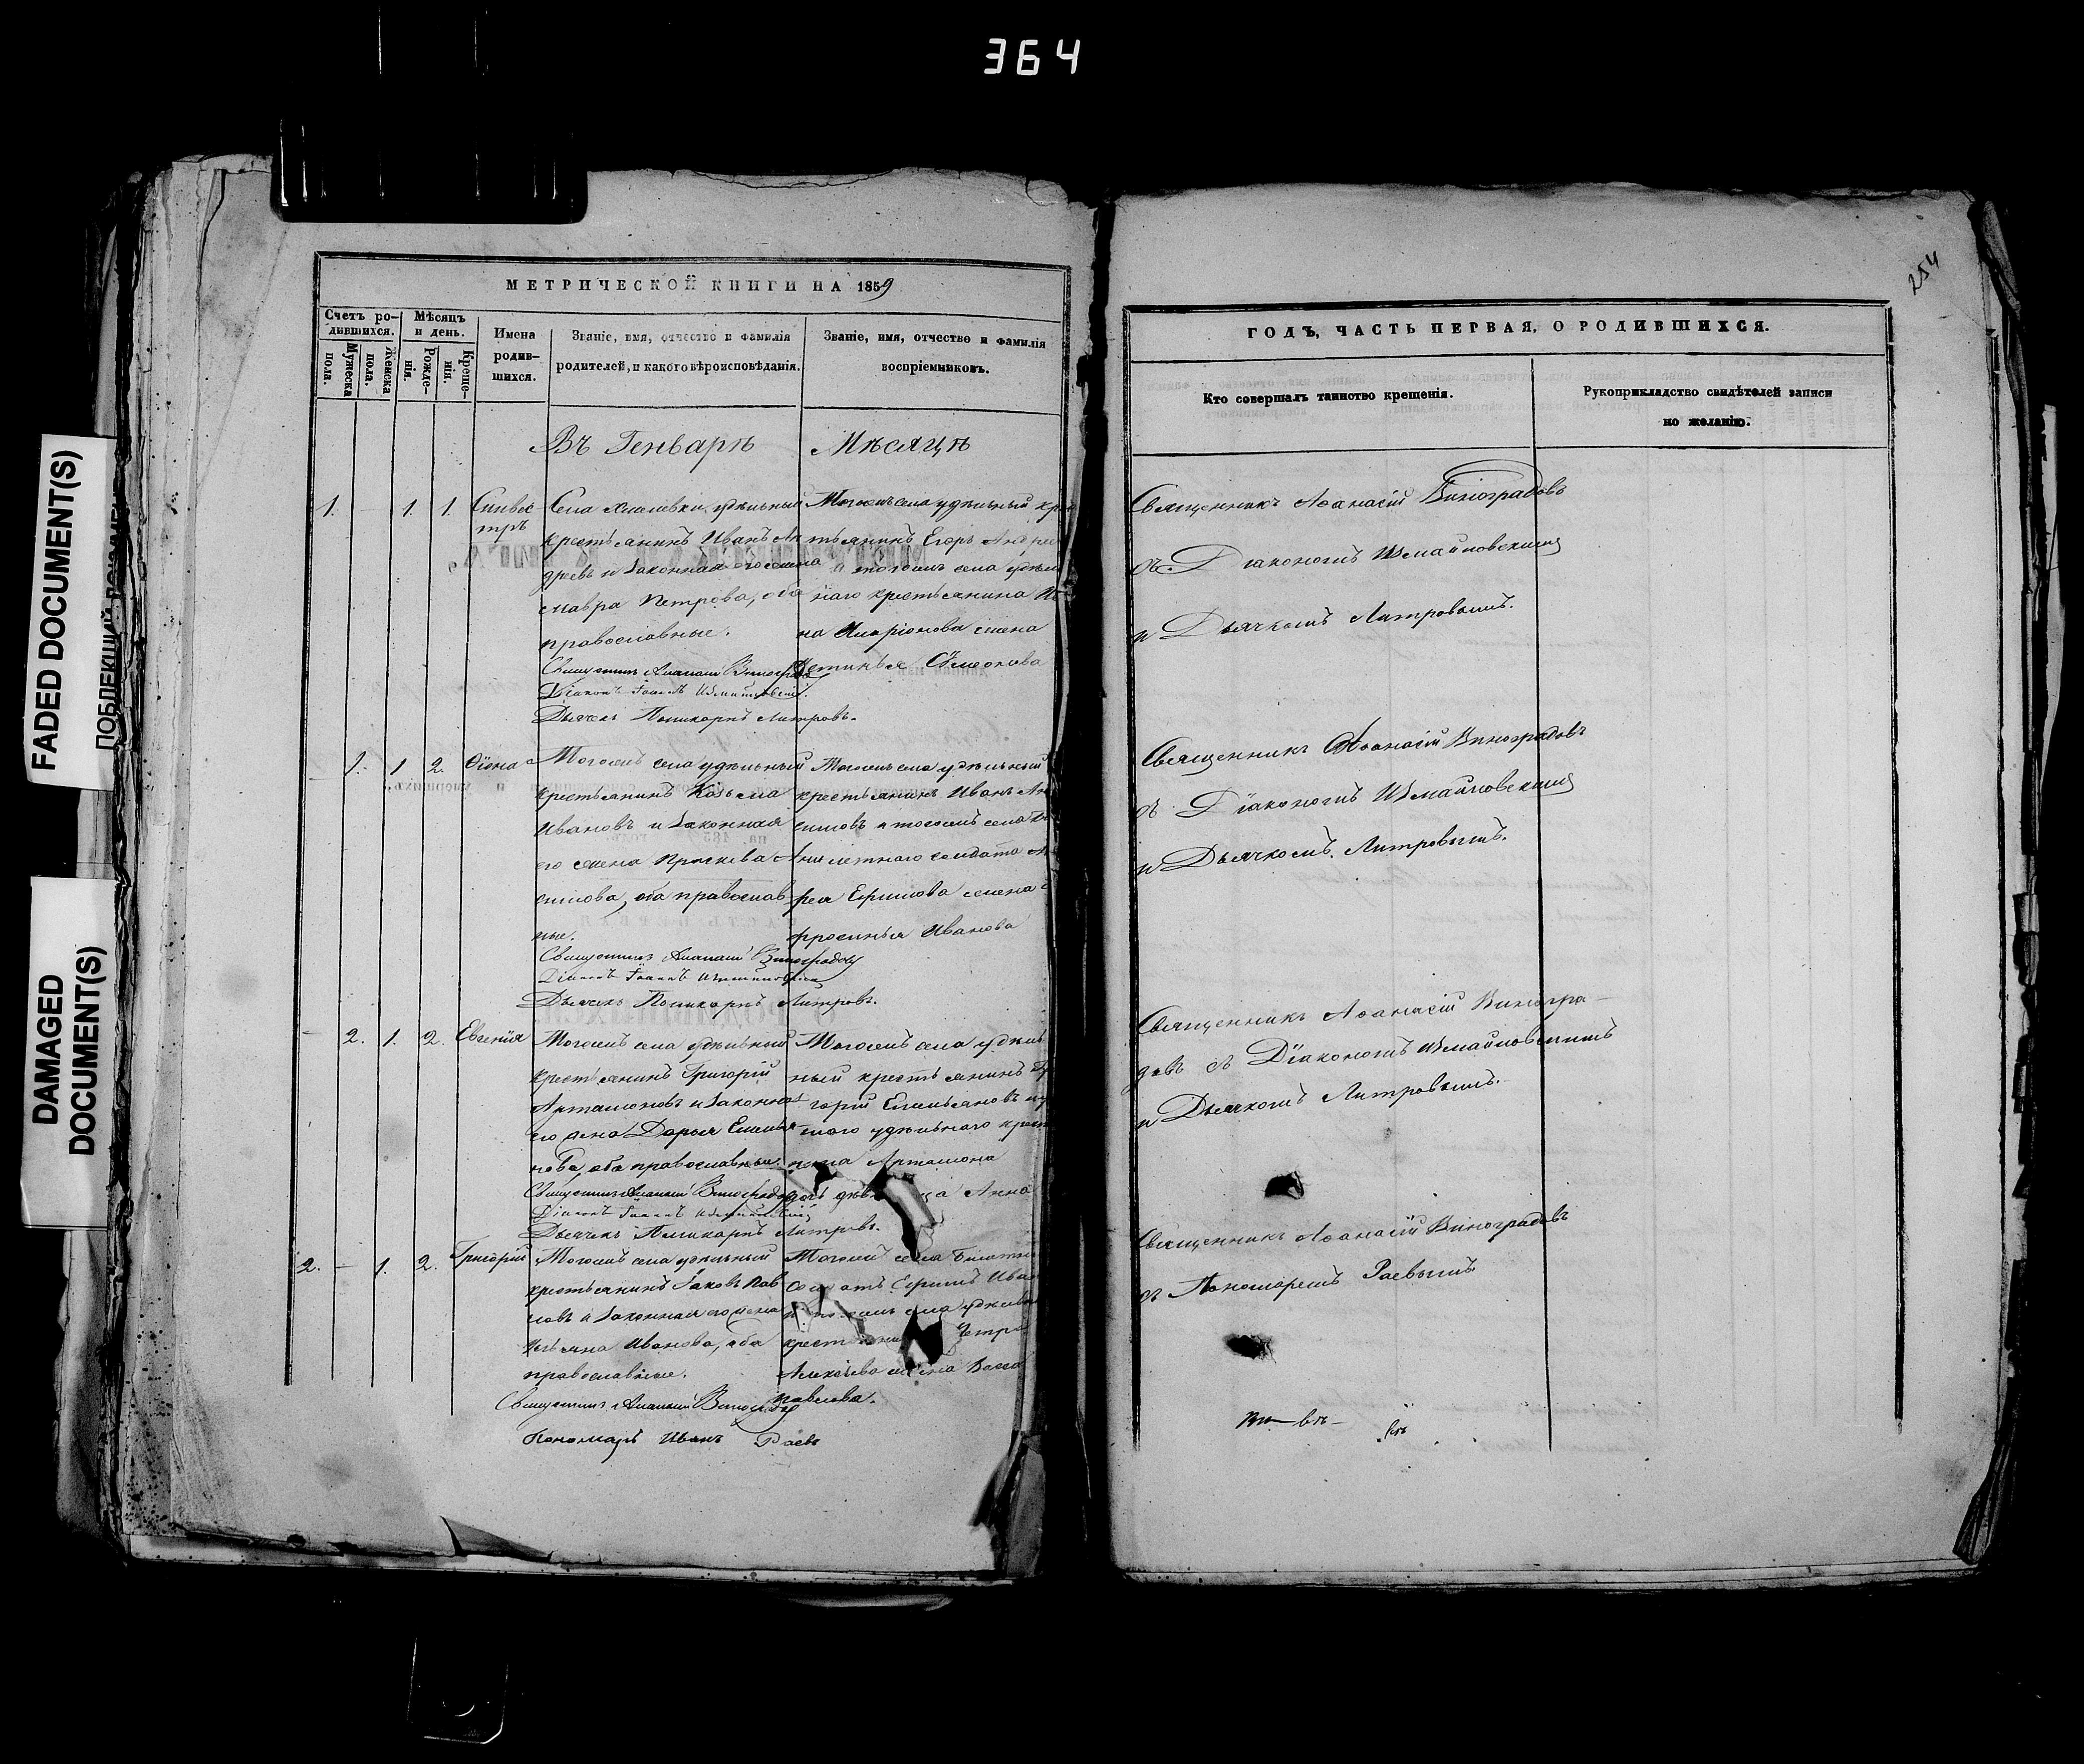 364
FADED DOCUMENT(S)
DAMAGED
DOCUMENT(S)
254
МЕТРИЧЕСКОЙ КНИГИ НА 1859
Счетъ ро-
дившихся.
Мужеска
пола.
Женска
пола.
Мѣсяцъ
и день.
Рожде-
нія.
Креще-
нія.
Имена
родив-
шихся.
Званіе, имя, отчество и фамилія
родителей, и какого вѣроисповѣданія.
Званіе, имя, отчество и фамилія
воспріемниковъ.
Въ Генварѣ Мѣсяцѣ
1. — 1. 1. Сильве
стръ
Села удѣльный
крестьянинъ Иванъ Ан
дреевъ и законная его жена
Мавра Петрова, оба
православные.
Священникъ Аѳанасій Виноградовъ
Діаконъ Іоаннъ Измайловскій.
Дьячекъ Поликарпъ Литровъ.
Тогожъ села удѣльный кре
стьянинъ Егоръ Андрее
и тогожъ села удѣль
наго крестьянина
на Иларіонова жена
Устинья Симеонова
— 1. 1 2. Ѳіона
Тогожъ села удѣльный
крестьянинъ Козьма
Ивановъ и законная
его жена Праскева Ани
симова, оба православ
ные.
Священникъ Аѳанасій Виноградовъ
Діаконъ Іоаннъ Измайловскій
Дьячекъ Поликарпъ Литровъ.
Тогожъ села удѣльный
крестьянинъ Иванъ Ан
симовъ и тогожъ села
лѣтнаго солдата
рея Ефимова жена
фросинья Иванова
— 2. 1. 2. Евгенія
Тогожъ села удѣльный
крестьянинъ Григорій
Артамоновъ и законная
его жена Дарья Емелья
нова, оба православные.
Священникъ Аѳанасій Виноградовъ
Діаконъ Іоаннъ Измайловскій
Дьячекъ Поликарпъ Литровъ.
Тогожъ села удѣль
ный крестьянинъ Гри
горій Емельяновъ и
удѣльнаго крест
Артамона
Анна
2. — 1. 2. Григорій
Тогожъ села удѣльный
крестьянинъ Іаковъ Пав
ловъ и законная его жена
Ульяна Иванова, оба
православные.
Священникъ Аѳанасій Виноградовъ
Пономарь Иванъ Раевъ
Тогожъ села
Ефимъ Ива
села удѣльн
крест Петра
Алексѣева жена Васса
Павлова.
ГОДЪ, ЧАСТЬ ПЕРВАЯ, О РОДИВШИХСЯ.
Кто совершалъ таинство крещенія.
Рукоприкладство свидѣтелей записи
по желанію.
Священникъ Аѳанасій Виноградовъ
съ Діакономъ Измайловскимъ
и Дьячкомъ Литровымъ.
Священникъ Аѳанасій Виноградовъ
съ Діакономъ Измайловскимъ
и Дьячкомъ Литровымъ.
Священникъ Аѳанасій Виногра-
довъ съ Діакономъ Измайловскимъ
и Дьячкомъ Литровымъ.
Священникъ Аѳанасій Виноградовъ
съ Пономаремъ Раевымъ